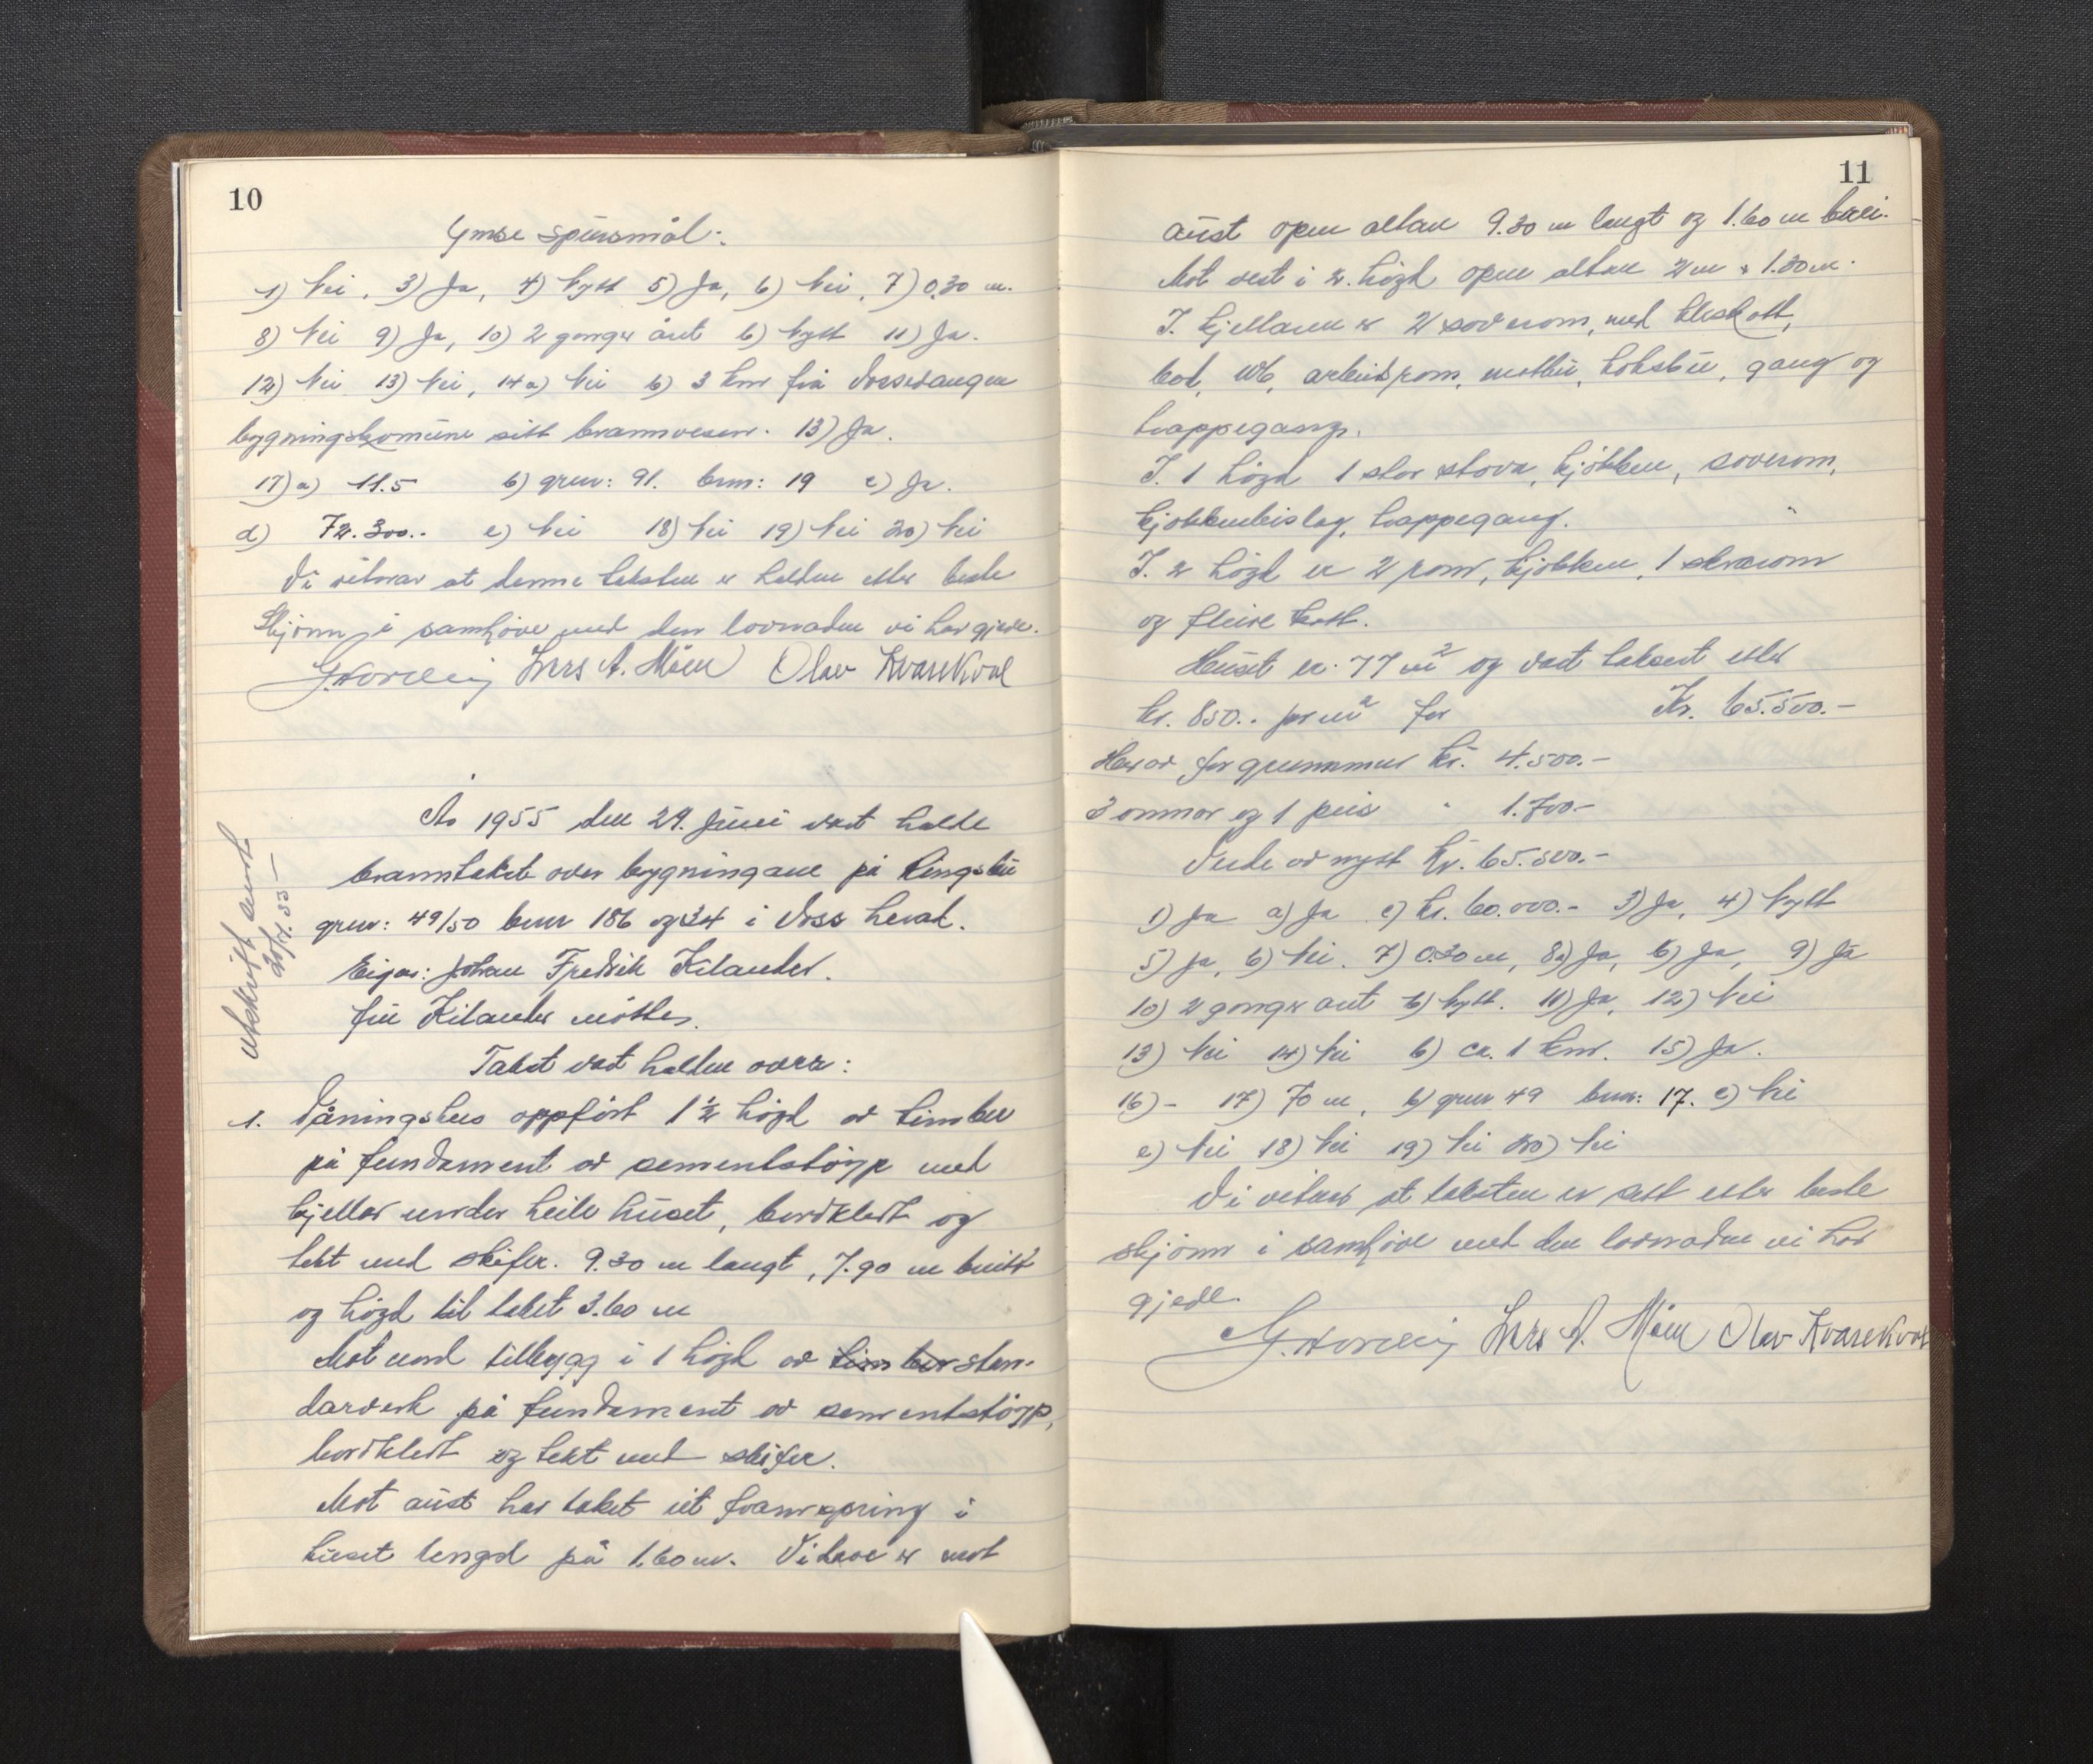 10
Ymse spursmål:
1) Nei, 3) Ja, 4) Nytt 5) Ja, 6) Nei, 7) 0.30 m.
8) Nei 9) Ja, 10) 2 gonger året b) Nytt 11) Ja.
12) Nei 13) Nei, 14 a) Nei b) 3 km frå Vossevangen
bygningskomune sitt brannvesen. 13) Ja.
17) a) 11.5 b) gnr: 91. bnr: 19 c) Ja.
d) 72.300.- e) Nei 18) Nei 19) Nei 20) Nei
Vi vitnar at denne taksten er halden etter beste
skjønn i samhøve med den lovnaden vi har gjeve.
Lars A. Møen Olav Kvarekval
År 1955 den 29. juni vart halde
branntakst over bygningane på Tingsbu
gnr: 49/50 bnr 186 og 34 i Voss herad.
Eigar: Johan Fredrik Kilander.
fru Kilander møtte.
Takst vart halden over:
1. Våningshus oppført 1 1/2 høgd av timber
på fundament av sementstøyp med
kjellar under heile huset, bordkledt og
tekt med skifer. 9.30 m langt, 7.90 m breitt
og høgd til taket 3.60 m
Mot nord tilbygg i 1 høgd av timber sten-
darverk på fundament av sementstøyp,
bordkledt og tekt med skifer.
Mot aust har taket eit framspring i
huset lengd på 1.60 m. Vidare er mot
utskrift sendt
20/7.55 -
11
aust open altan 9.30 m langt og 1.60 m brei.
Mot vest i 2. høgd open altan 2 m x 1.30 m.
I. kjellaren er 2 soverom, med kleskott,
bod, wc, arbeidsrom, matbu, koksbu, gang og
trappegang.
I. 1 høgd 1 stor stova, kjøkken, soverom,
kjøkkenbislag, trappegang.
I. 2 høgd er 2 rom, kjøkken, 1 soverom
og fleire kott.
Huset er 77 m² og vart taksert etter
kr. 850.- pr m² for Kr. 65.500.-
Herav for grunnmur kr. 4.500.-
3 omnar og 1 peis " 1.700.-
Verde av nytt kr. 65.500.-
1) Ja a) Ja c) kr. 60.000.- 3) Ja, 4) Nytt
5) Ja, 6) Nei. 7) 0.30 m, 8a) Ja, b) Ja, 9) Ja
10) 2 gonger året b) Nytt. 11) Ja, 12) Nei
13) Nei 14) Nei b) ca. 1 km. 15) Ja.
16) - 17) 70 m, b) gnr 49 bnr: 17. c) Nei
e) Nei 18) Nei 19) Nei 20) Nei
Vi vitnar at taksten er sett etter beste
skjønn i samhøve med den lovnaden vi har
gjeve.
Lars A. Møen Olav Kvarekval